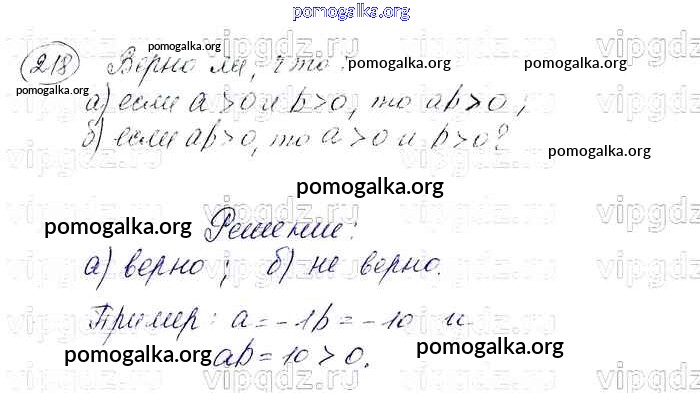 pomogalka.org
218 Верно ли, что:
pomogalka.org
pomogalka.org
pomogalka.org
pomogalka.org
а) если a > 0 и b > 0, то ab > 0,
б) если ab > 0, то a > 0 и b > 0?
pomogalka.org
pomogalka.org
pomogalka.org
Решение:
а) верно; б) не верно.
Пример: a = -1 b = -10 и
ab = 10 > 0.
pomogalka.org
pomogalka.org